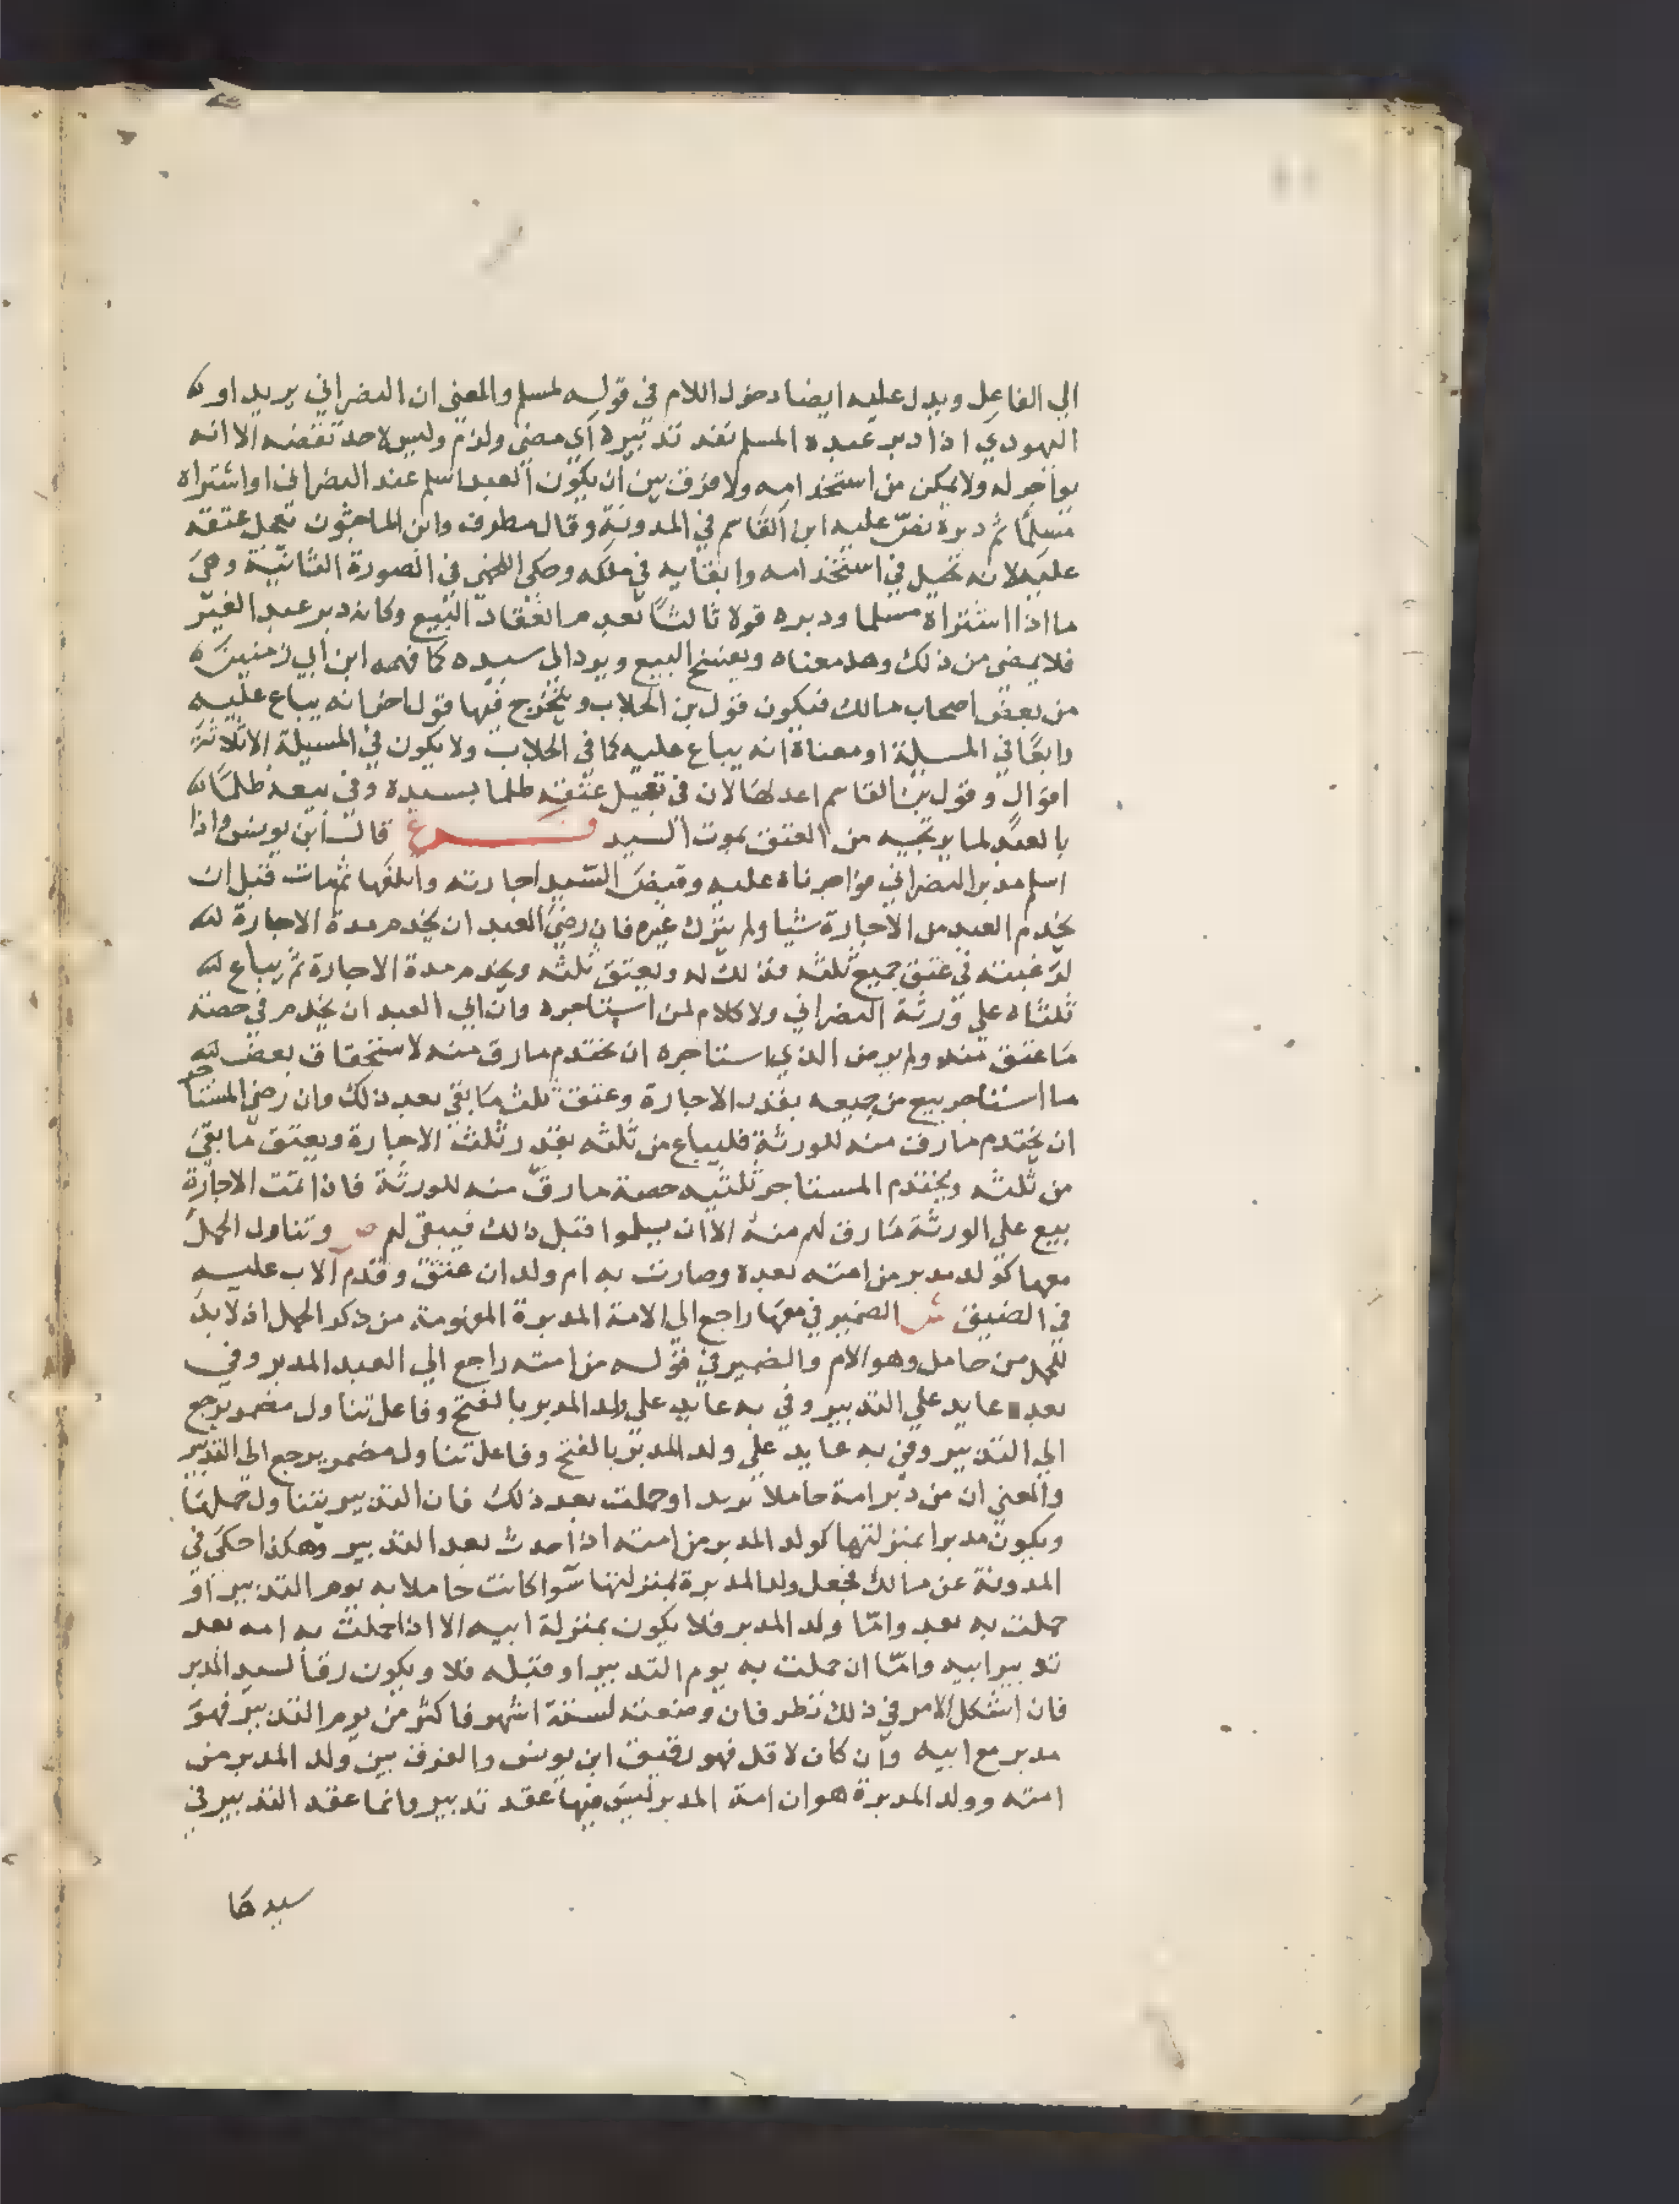 الي الفاعل ويدل عليه ايضا دخول اللام في قوله لمسلم والمعني ان النصراني يريد او
اليهودي اذا دبر عبده المسلم نفذ تدبيره اي مضي ولزم وليس لاحد نقضه الا انه
يواجر له ولا يمكن من استخدامه ولا فرق بين ان يكون العبد اسلم عند النصراني او اشتراه
مسلما ثم دبره نص عليه ابن القاسم في المدونة وقال مطرف وابن الماجشون يعجل عتقه
عليه لانه تحيل في استخدامه وابقايه في ملكه وحكي اللخمي في الصورة الثانية وهي
ما اذا اشتراه مسلما ودبره قولا ثالثا بعدم انعقاد البيع وكانه دبر عبد الغير
فلا يمضي من ذلك وهد معناه ويفسخ البيع ويرد الي سيده كما فهمه ابن ابي زمنين
من بعض اصحاب مالك فيكون قول بن الجلاب ويتخرج فيها قول اخر انه يباع عليه
رابعا في المسيلة او معناه انه يباع عليه كما في الجلاب ولا يكون في المسيلة الا ثلاثة
اقوال وقول بن القاسم اعدلها لان في تعجيل عتقه ظلما بسيده وفي بيعه ظلما
بالعبد لما يرتجيه من العتق بموت السيد فرع قال ابن يونس واذا
اسلم مدبر النصراني فواجرناه عليه وقبض السيد اجارته واتلفها ثم مات قبل ان
يخدم العبد من الاجارة شيا ولم يترك غيره فان رضي العبد ان يخدم مدة الاجارة
لرغبته في عتق جميع ثلثه فذلك له ويعتق ثلثه ويخدم مدة الاجارة ثم يباع
ثلثاه علي ورثة النصراني ولا كلام لمن استاجره وان ابي العبد ان يخدم في حصة
ما عتق منه ولم يرض الذي استاجره ان يختدم ما رق منه لاستحقاق بعض
ما استاجر بيع من جميعه بقدر الاجارة وعتق ثلث ما بقي بعد ذلك وان رضي المستاجر
ان يختدم ما رق منه للورثة فليباع من ثلثه بقدر ثلث الاجارة ويعتق ما بقي
من ثلثه ويختدم المستاجر ثلثيه حصة ما رق منه للورثة فاذا تمت الاجارة
بيع علي الورثة ما رق لهم منه الا ان يسلموا قبل ذلك فيبقي لهم ص وتناول الحمل
معها كولد مدبر من امته بعده وصارت به ام ولد ان عتق وقدم الاب عليه
في الضيق ش الضمير في معها راجع الي الامة المدبرة المفهومة من ذكر الحمل اذ لا بد
للحمل من حامل وهو الام والضمير في قوله من امته راجع الي العبد المدبر وفي
بعده عايد علي التدبير وفي به عايد علي ولد المدبر بالفتح وفاعل تناول مضمر يرجع
الي التدبير وفي به عايد علي ولد المدبر بالفتح وفاعل تناول مضمر يرجع الي التدبير
والمعني ان من دبر امة حاملا يريد او حملت بعد ذلك فان التدبير يتناول حملها
ويكون مدبرا بمنزلتها كولد المدبر من امته اذا حدث بعد التدبير وهكذا حكي في
المدونة عن مالك فجعل ولد المدبرة بمنزلتها سوا كانت حاملا به يوم التدبير او
حملت به بعد واما ولد المدبر فلا يكون بمنزلة ابيه الا اذا حملت به امه بعد
تدبير ابيه واما ان حملت به يوم التدبير او قبله فلا ويكون رقا لسيد المدبر
فان اشكل الامر في ذلك نظر فان وضعته لستة اشهر فاكثر من يوم التدبير فهو
مدبر مع ابيه وان كان لاقل فهو رقيق ابن يونس والفرق بين ولد المدبر من
امته وولد المدبرة هو ان امة المدبر ليس فيها عقد تدبير وانما عقد التدبير في
سيدها